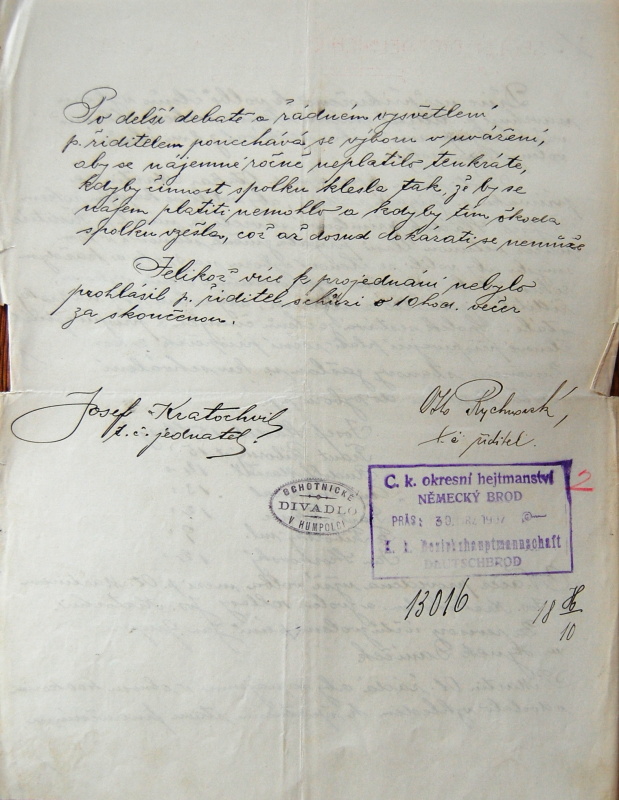 Po delší debatě a řádném vysvětlení
p. řiditelem ponechává se výboru v uvážení,
aby se nájemné ročně neplatilo tenkráte,
kdyby činnost spolku klesla tak, že by se
nájem platiti nemohlo a kdyby tím škoda
spolku vzešla, což až dosud dokázati se nemůže
Jelikož více k projednání nebylo
prohlásil p. řiditel schůzi o 10 hod. večer
za skončenou.
Josef Kratochvil
t. č. jednatel
Otto
t. č. řiditel.
OCHOTNICKÉ
DIVADLO
V HUMPOLCI
C. k. okresní hejtmanství
NĚMECKÝ BROD
PRÄS: 30
K. k. Bezirkshauptmannschaft
DEUTSCHBROD
2
13016
18
10